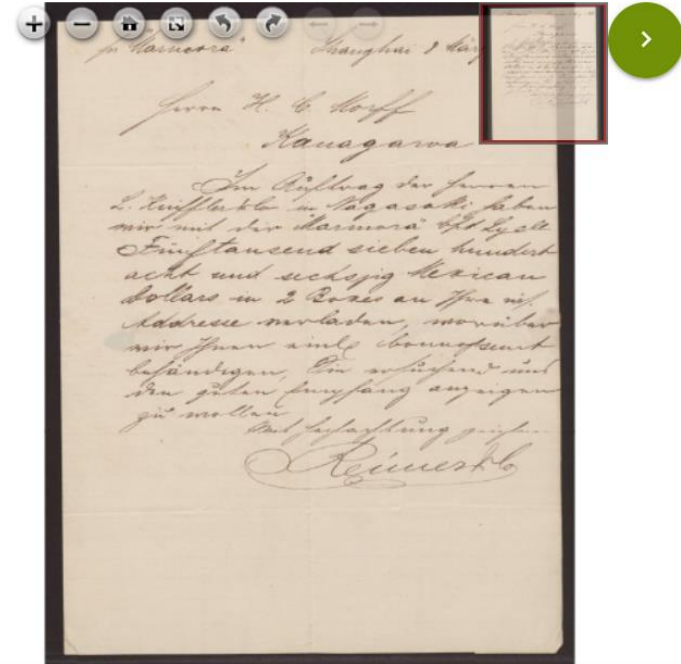 pr "Marmora" Shanghai 8 März
Herrn H. C. Morff
Kanagawa
Im Auftrag der Herren
L. Kniffler & Co in Nagasaki haben
wir mit der "Marmora" Cpt Lyell
Fünftausend sieben hundert
acht und sechszig Mexican
Dollars in 2 Boxes an Ihre
Addresse verladen, worüber
wir Ihnen einl. Connossemt
behändigen, Sie ersuchend uns
den guten Empfang anzeigen
zu wollen
Mit Hochachtung zeichnen
Reimers & Co